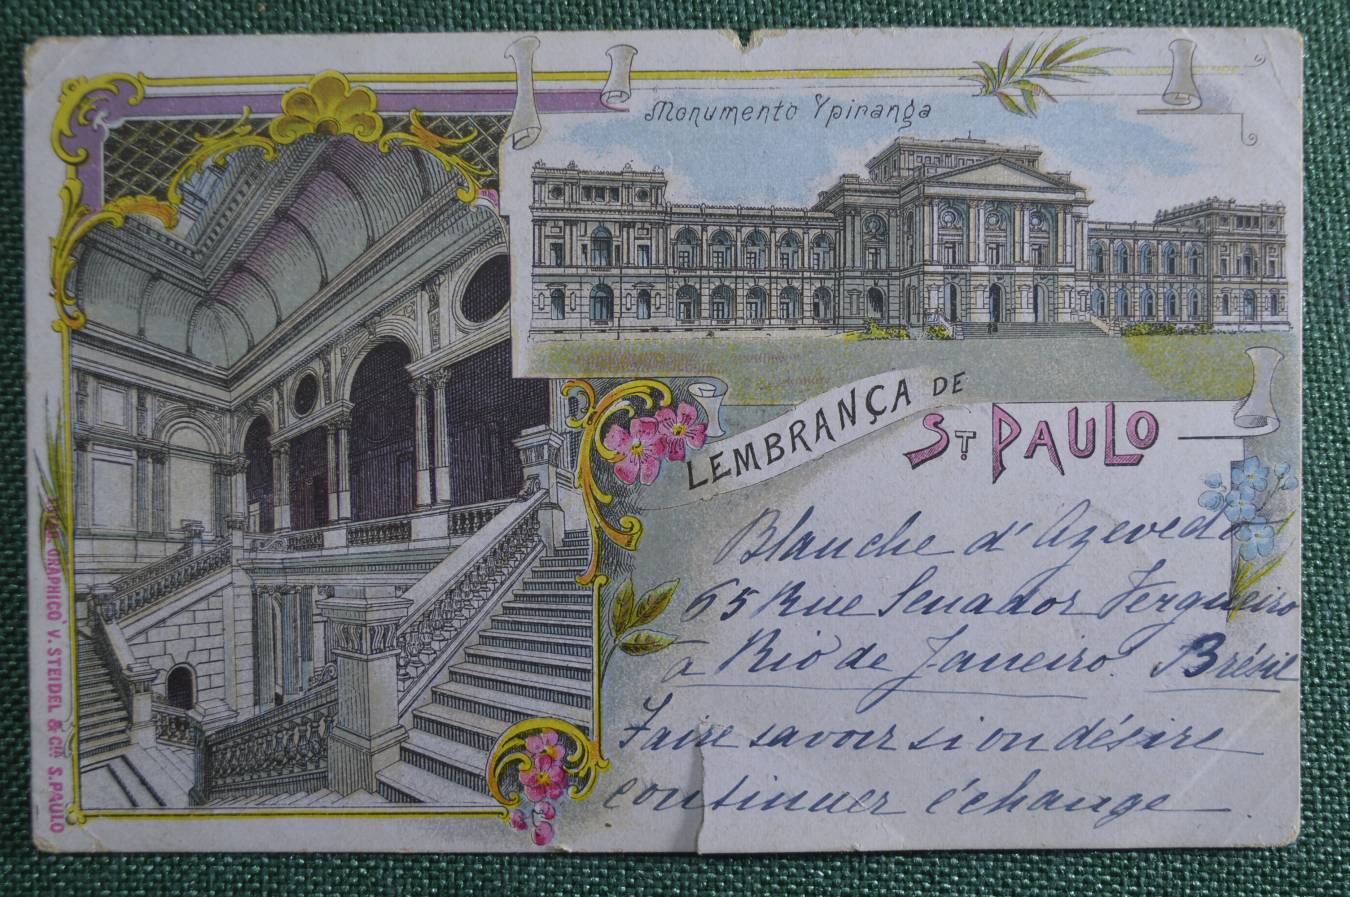 Monumento Ypiranga
LEMBRANÇA DE
ST PAULO
Blanche d' Azevedo
65 Rue Senador Vergueiro
à Rio de Janeiro. Brésil
Faire savoir si on désire
continuer l'échange
GRAPHICO V. STEIDEL & Cia S. PAULO